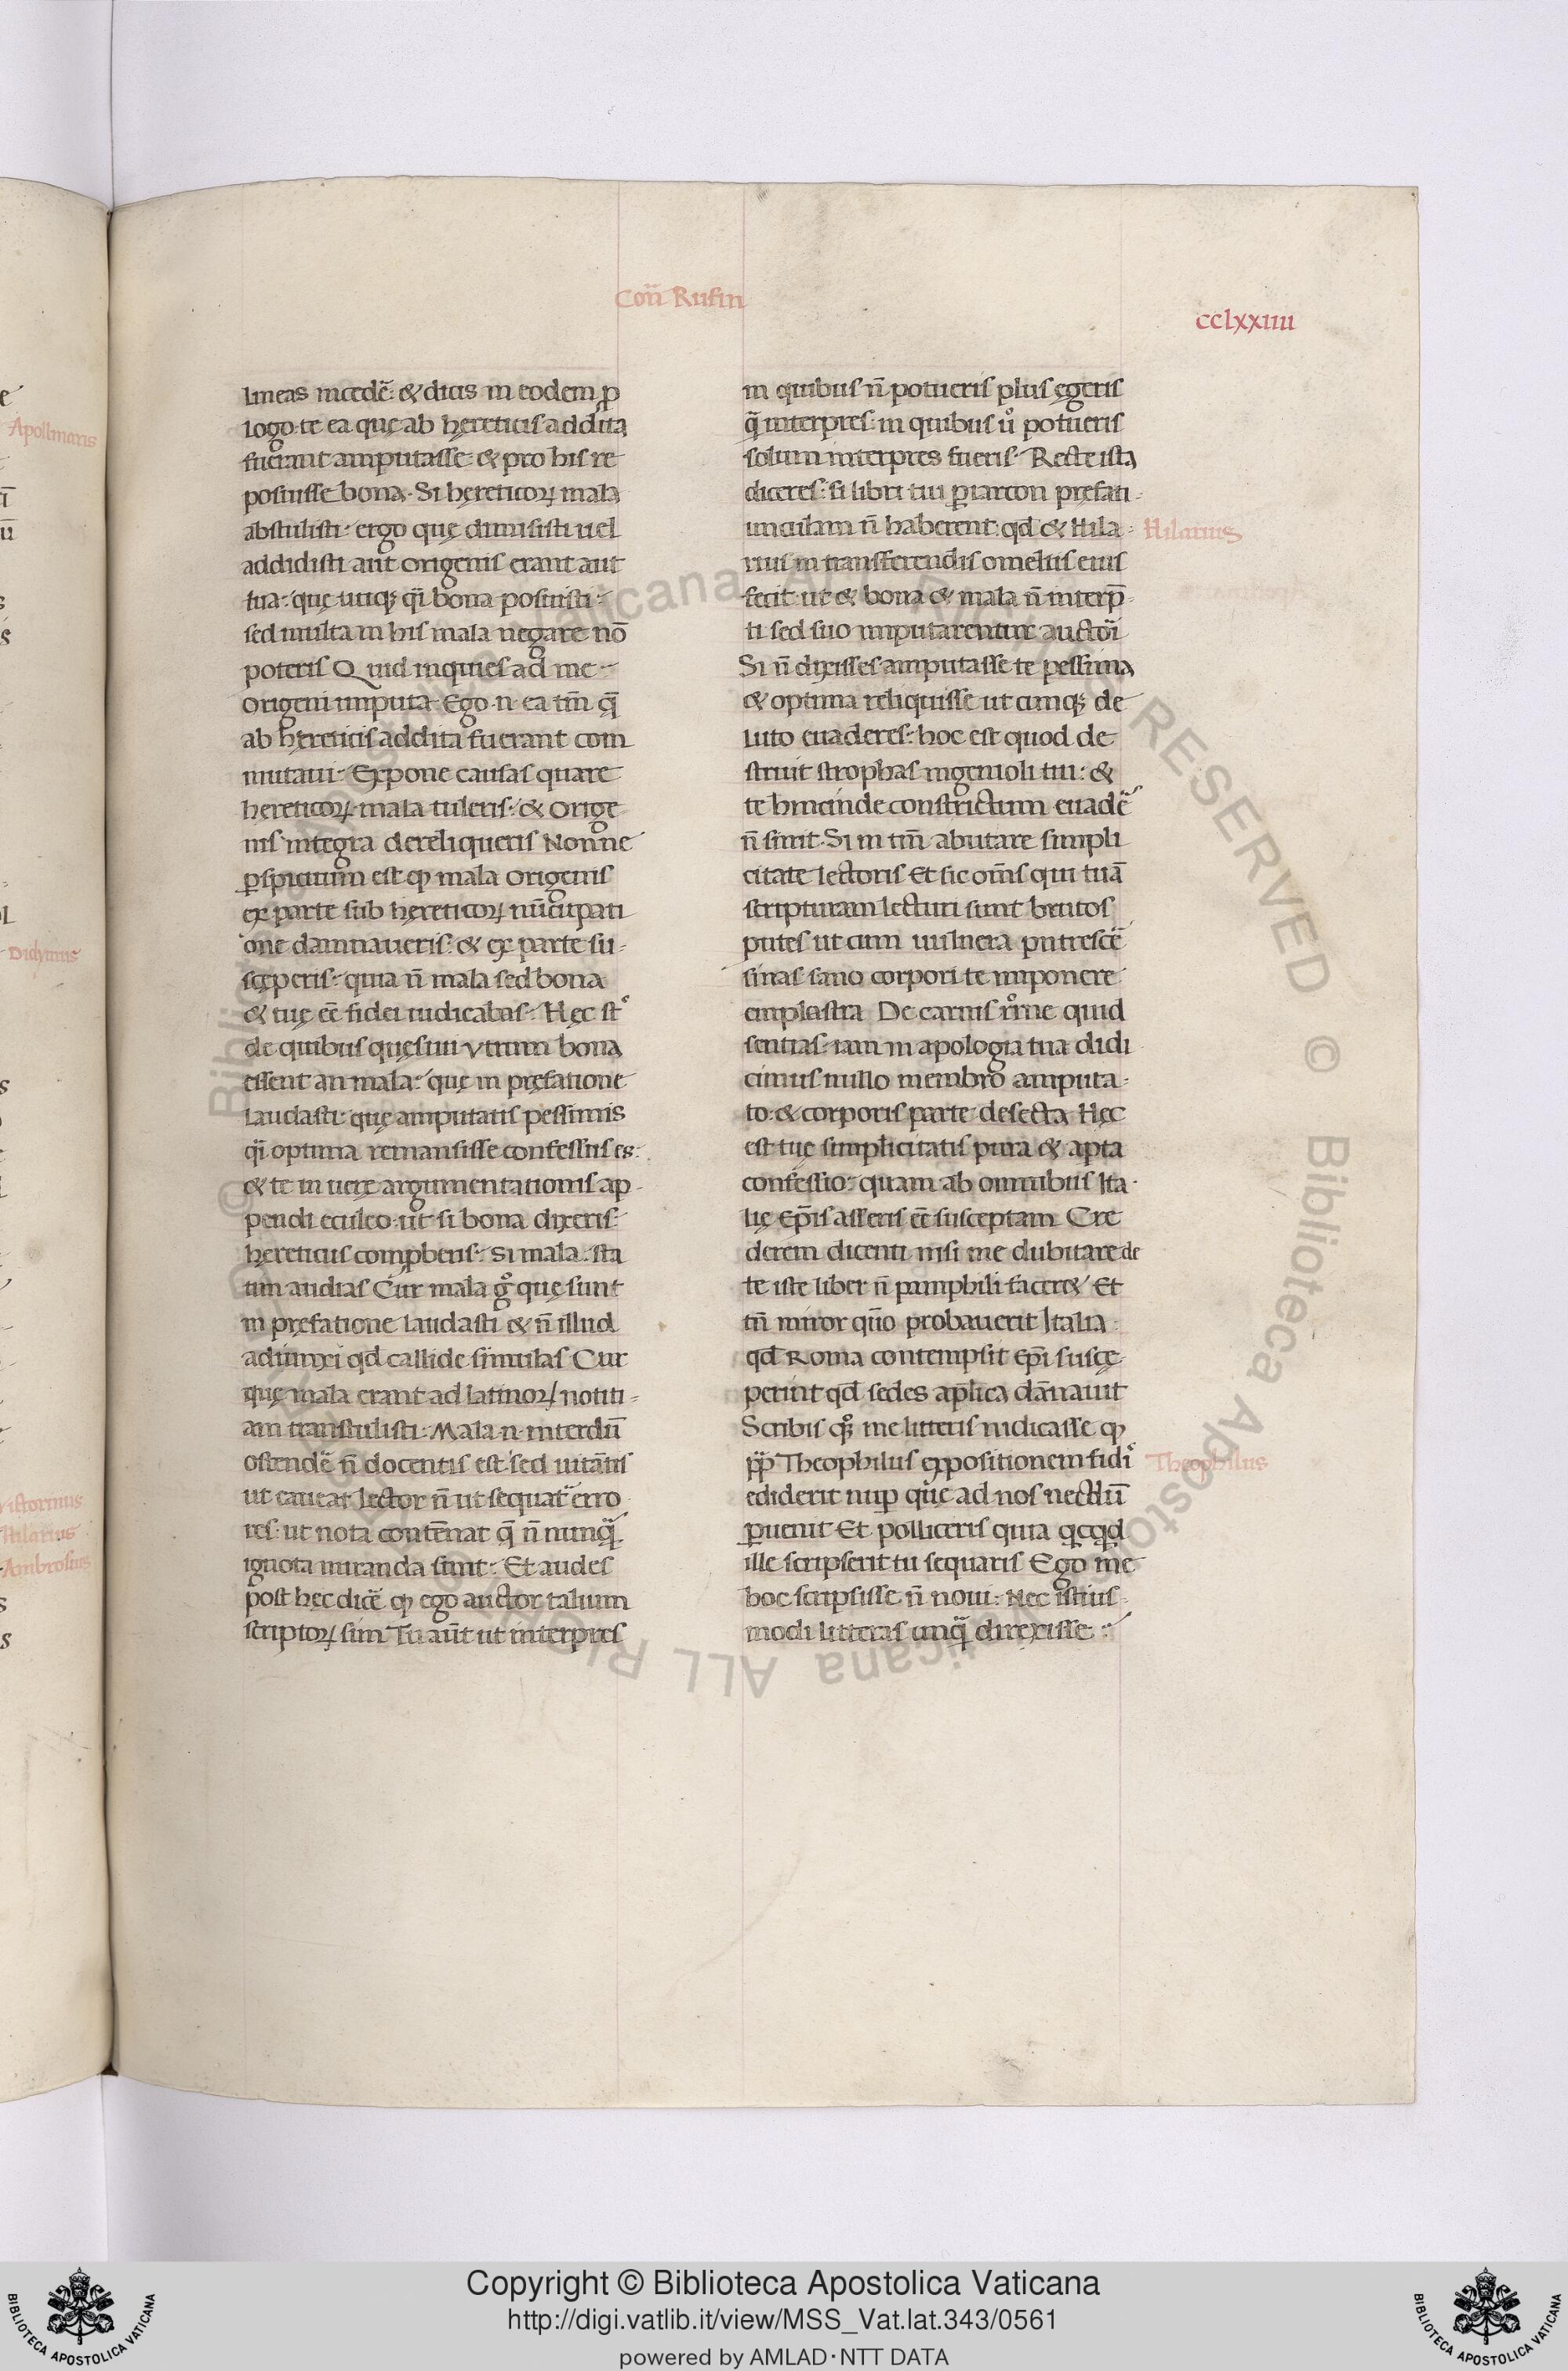 Con̄ Rufin
cclxxiiii
lineas incedē: & dicis in eodem ꝓ
logo te ea quę ab hęreticis addita
fuerant amputasse: & pro his re
posuisse bona. Si hęreticoꝝ mala
abstulisti: ergo quę dimisisti uel
addidisti aut origenis erant aut
tua: quę utiqꝫ qͣi bona posuisti:
sed multa in his mala negare nō
poteris Quid inquies ad me
origeni imputa. Ego .n. ea tm̄ q̄
ab hęreticis addita fuerant com
mutaui. Expone causas quare
hereticoꝝ mala tuleris: & Orige
nis integra dereliqueris Nonne
ꝑspicuum est ꝙ mala Origenis
ex parte sub hęreticoꝝ nūcupati
one damnaueris: & ex parte su-
sceperis: quia n̄ mala sed bona
& tuę eē fidei iudicabas: Hęc st̉
de quibus quęsiui vtrum bona
essent an mala: quę in pręfatione
laudasti: quę amputatis pessimis
qͣi optima remansisse confessus es:
& te in uerę argumentationis ap-
pendi eculeo: ut si bona dixeris:
hęreticus comꝓberis: Si mala: sta
tim audias Cur mala gͦ quę sunt
in pręfatione laudasti & n̄ illud
adiunxi qd̄ callide simulas Cur
quę mala erant ad latinoꝝ notiti-
am transtulisti: Mala .n. interdū
ostendē n̄ docentis est sed uitātis
ut caueat lector n̄ ut sequat᷑ erro
res: ut nota contēnat q̄ n̄ nunqͣ̄
ignota miranda sunt: Et audes
post hęc dicē ꝙ ego auctor talium
scriptoꝝ sim Tu aūt ut interpres
in quibus n̄ potueris plus egeris
qͣ̄ interpres: in quibus ū potueris
solum interpres fueris: Recte ista
diceres: si libri tui ꝑiarcon pręfati-
unculam n̄ haberent: qd̄ & Hila-
Hilarius
rius in transferendis omeliis eius
fecit: ut & bona & mala n̄ interp̄-
ti sed suo imputarentur auctoͥi
Si n̄ dixisses amputasse te pessima
& optima reliquisse ut cunqꝫ de
luto euaderes: hoc est quod de
struit strophas ingenioli tui: &
te hincinde constrictum euadē
n̄ sinit. Si in tm̄ abutare simpli
citate lectoris Et sic om̄s qui tuā
scripturam lecturi sunt brutos
putes ut cum uulnera putrescē
sinas sano corpori te imponere
emplastra De carnis rͬrne quid
sentias: iam in apologia tua didi
cimus nullo membro amputa-
to: & corporis parte desecta Hęc
est tuę simplicitatis pura & apta
confessio: quam ab omnibus Ita-
lię Ep̄is asseris eē susceptam Cre
derem dicenti nisi me dubitare de
te iste liber n̄ pamphili facer& Et
tn̄ miror quō probauerit Italia:
qd̄ Roma contempsit Ep̄i susce
perint qd̄ sedes ap̄lica dānauit
Scribis qͦqꝫ me litteris indicasse ꝙ
pp̄ Theophilus expositionem fidi̓
Theophilus
ediderit nuꝑ quę ad nos necdū
ꝑuenit Et polliceris quia qcqd
ille scripserit tu sequaris Ego me
hoc scripsisse n̄ noui: Nec istius
modi litteras unqͣ̄ direxisse:
Apollinaris
Didymus
Hilarius
Ambrosius
© Biblioteca Apostolica Vaticana ALL RIGHTS RESERVED
Copyright © Biblioteca Apostolica Vaticana
http://digi.vatlib.it/view/MSS_Vat.lat.343/0561
powered by AMLAD·NTT DATA
BIBLIOTECA APOSTOLICA VATICANA
BIBLIOTECA APOSTOLICA VATICANA